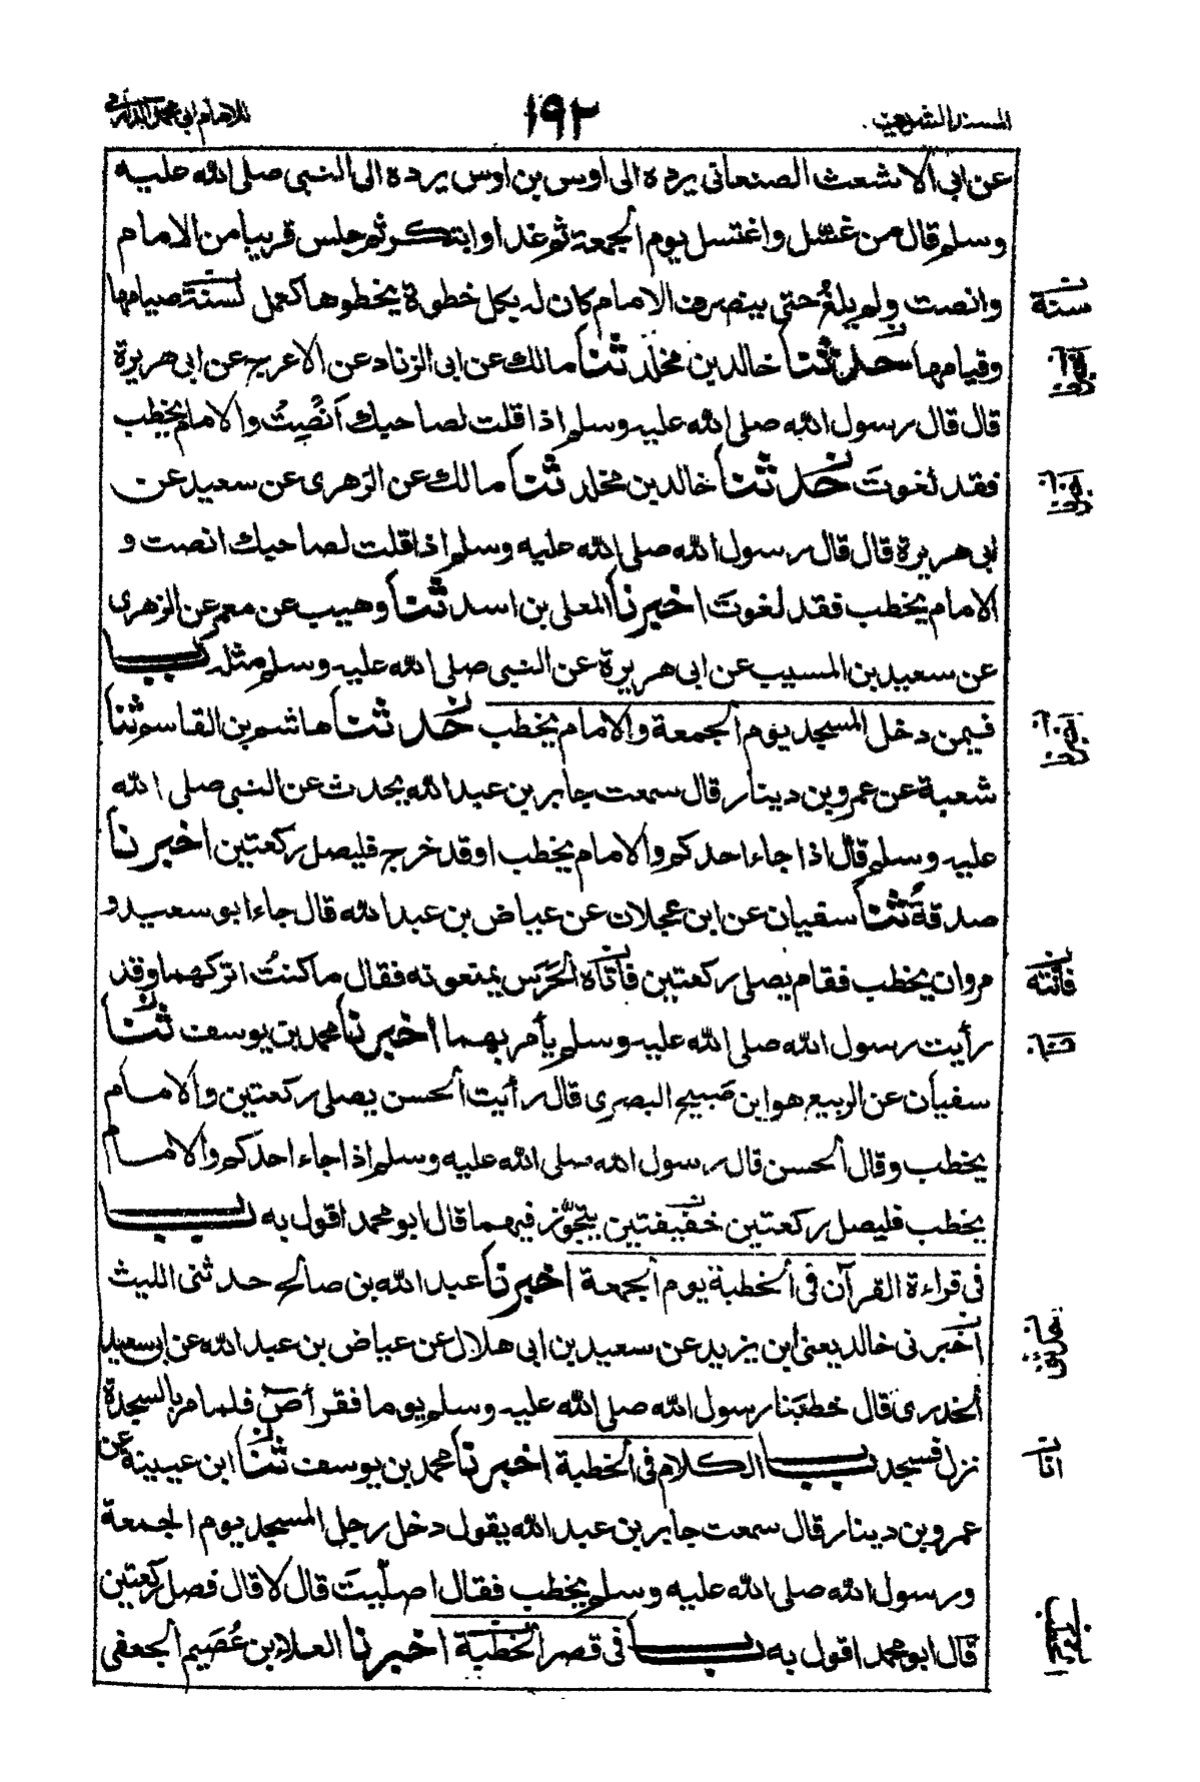 المسند الشريف
١٩٢
للامام ابى محمد الدارمى
عن ابى الاشعث الصنعانى يرده الى اوس بن اوس يرده الى النبى صلى الله عليه
وسلم قال من غسّل واغتسل يوم الجمعة ثم غدا وابتكر ثم جلس قريبا من الامام
وانصت ولم يلغُ حتى ينصرف الامام كان له بكل خطوة يخطوها كعمل لسنة صيامها
سنة
وقيامها حدثنا خالد بن مخلد ثنا مالك عن ابى الزناد عن الاعرج عن ابى هريرة
قال قال رسول الله صلى الله عليه وسلم اذا قلت لصاحبك اَنْصِتْ والامام يخطب
فقد لغوتَ حدثنا خالد بن مخلد ثنا مالك عن الزهرى عن سعيد عن
ابى هريرة قال قال رسول الله صلى الله عليه وسلم اذا قلت لصاحبك انصت و
الامام يخطب فقد لغوتَ اخبرنا المعلى بن اسد ثنا وهيب عن معمر عن الزهرى
عن سعيد بن المسيب عن ابى هريرة عن النبى صلى الله عليه وسلم مثله باب
فيمن دخل المسجد يوم الجمعة والامام يخطب حدثنا هاشم بن القاسم ثنا
شعبة عن عمرو بن دينار قال سمعت جابر بن عبد الله يحدث عن النبى صلى الله
عليه وسلم قال اذا جاء احدكم والامام يخطب او قد خرج فليصل ركعتين اخبرنا
صدقة ثنا سفيان عن ابن عجلان عن عياض بن عبد الله قال جاء ابو سعيد و
مروان يخطب فقام يصلى ركعتين فاتاه الحَرَس يمنعونه فقال ما كنتُ اتركهما وقد
فأتته
رأيت رسول الله صلى الله عليه وسلم يأمر بهما اخبرنا محمد بن يوسف ثنا
سفيان عن الربيع هو ابن صَبيح البصرى قال رأيت الحسن يصلى ركعتين والامام
يخطب وقال الحسن قال رسول الله صلى الله عليه وسلم اذا جاء احدكم والامام
يخطب فليصل ركعتين خفيفتين يتجوّز فيهما قال ابو محمد اقول به باب
فى قراءة القرآن فى الخطبة يوم الجمعة اخبرنا عبد الله بن صالح حدثنى الليث
اخبرنى خالد يعنى ابن يزيد عن سعيد بن ابى هلال عن عياض بن عبد الله عن ابى سعيد
الخدرى قال خطبَنا رسول الله صلى الله عليه وسلم يوما فقرأ صٓ فلما مر بالسجدة
نزل فسجد باب الكلام فى الخطبة اخبرنا محمد بن يوسف ثنا ابن عيينة عن
انا
عمرو بن دينار قال سمعت جابر بن عبد الله يقول دخل رجل المسجد يوم الجمعة
ورسول الله صلى الله عليه وسلم يخطب فقال اصلّيتَ قال لا قال فصل ركعتين
قال ابو محمد اقول به باب فى قصر الخطبة اخبرنا العلاء بن عُصَيم الجعفى